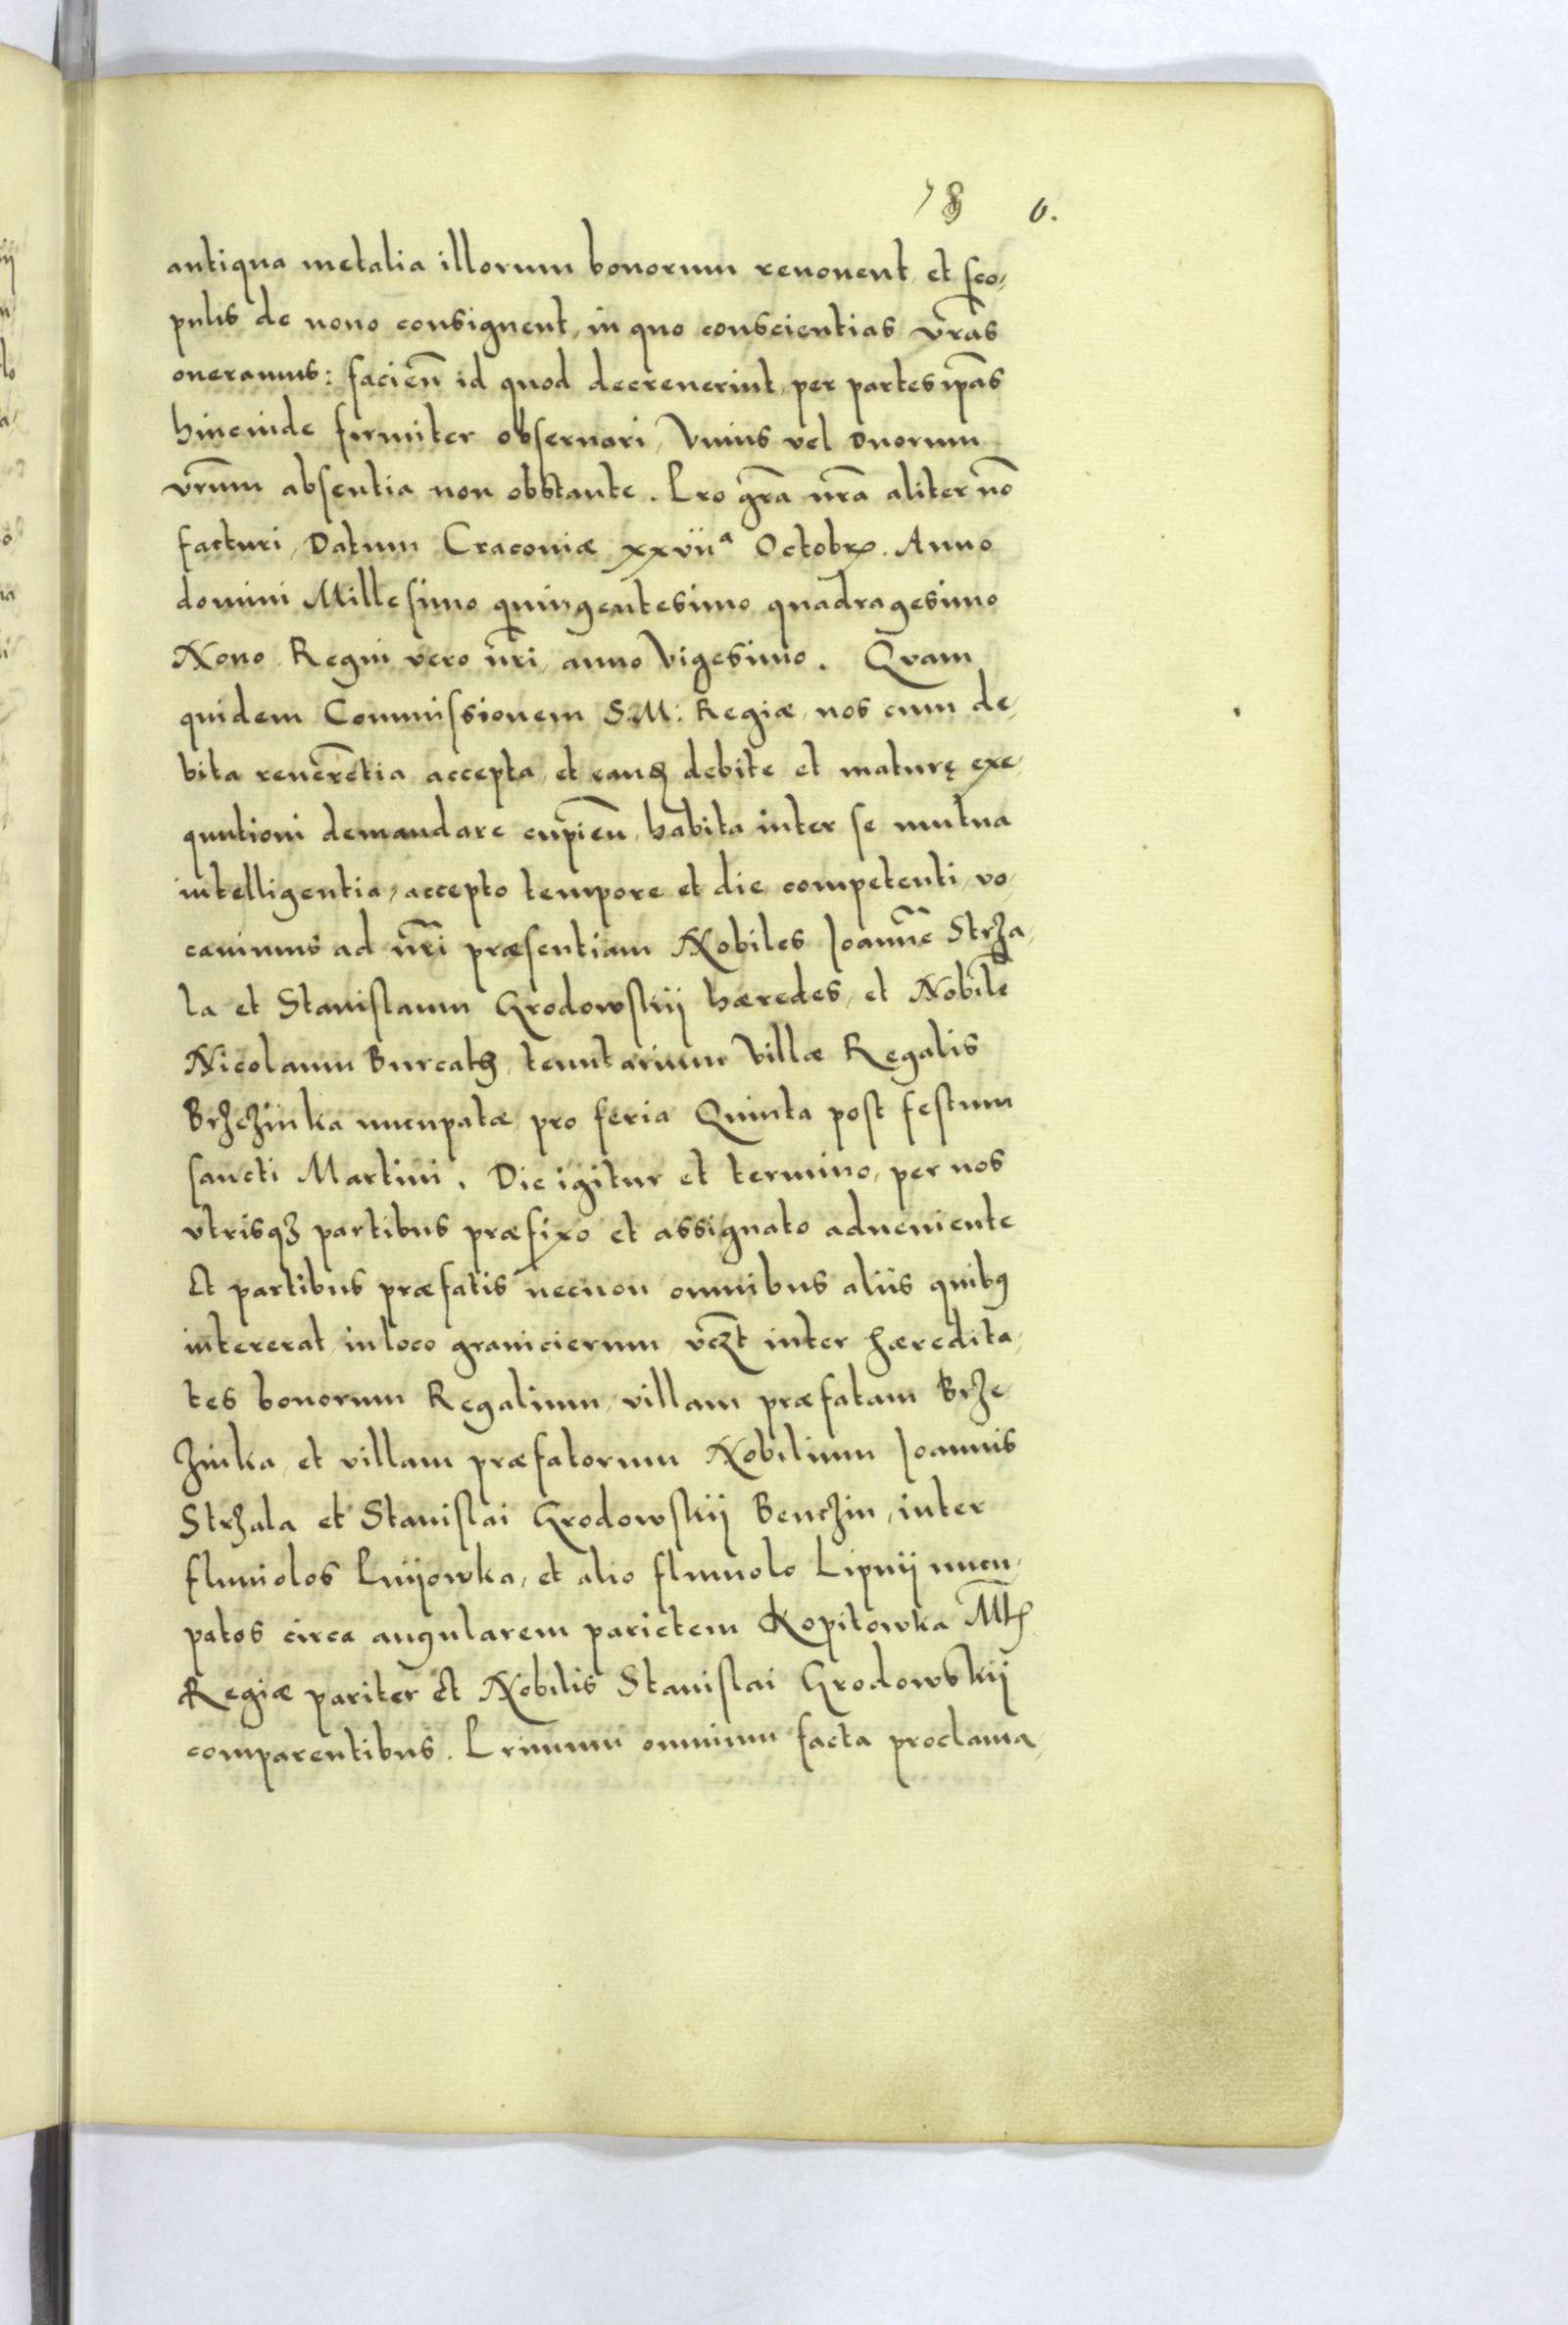 78 6.
antiqua metalia illorum bonorum renouent, et sco,
pulis de nouo consignent, in quo conscientias vr̃as
oneramus: facien̄ id quod decreuerint, per partes ip̃as
hincinde firmiter obseruari, Vnius vel Duorum
vr̃um absentia non obstante. Pro gr̃a nr̃a aliter nō
facturi, Datum Cracouiæ xxvii ͣ Octobr̃. Anno
domini Millesimo quingentesimo quadragesimo
Nono. Regni vero nr̃i, anno Vigesimo. Quam
quidem Commissionem S.M: Regiæ, nos cum de,
bita reuerētia accepta, et eanq́ debite et maturę exe,
quutioni demandare cupien̄, habita inter se mutua
intelligentia, accepto tempore et die competenti, vo,
cauimus ad nr̃i præsentiam Nobiles Joannē Strza,
la et Stanislaum Grodowskij hæredes, et Nobilē
Nicolaum Burcath, tenutarium Villæ Regalis
Brzezinka nuncupatæ, pro feria Quinta post festum
sancti Martini. Die igitur et termino, per nos
vtrisqꝫ partibus præfixo et assignato adueniente
Et partibus præfatis necnon omnibus aliis quibꝰ
intererat, in loco granicierum, vcꝫt inter hæredita,
tes bonorum Regalium, villam præfatam Brze,
zinka, et villam præfatorum Nobilium Joannis
Strzala et Stanislai Grodowskij Benczin, inter
fluuiolos Pnijowka, et alio fluuiolo Lipnij nuncu,
patos circa angularem parietem Kopitowka Mt̄is
Regiæ pariter et Nobilis Stanislai Grodowskij
comparentibus. Primum omnium facta proclama,